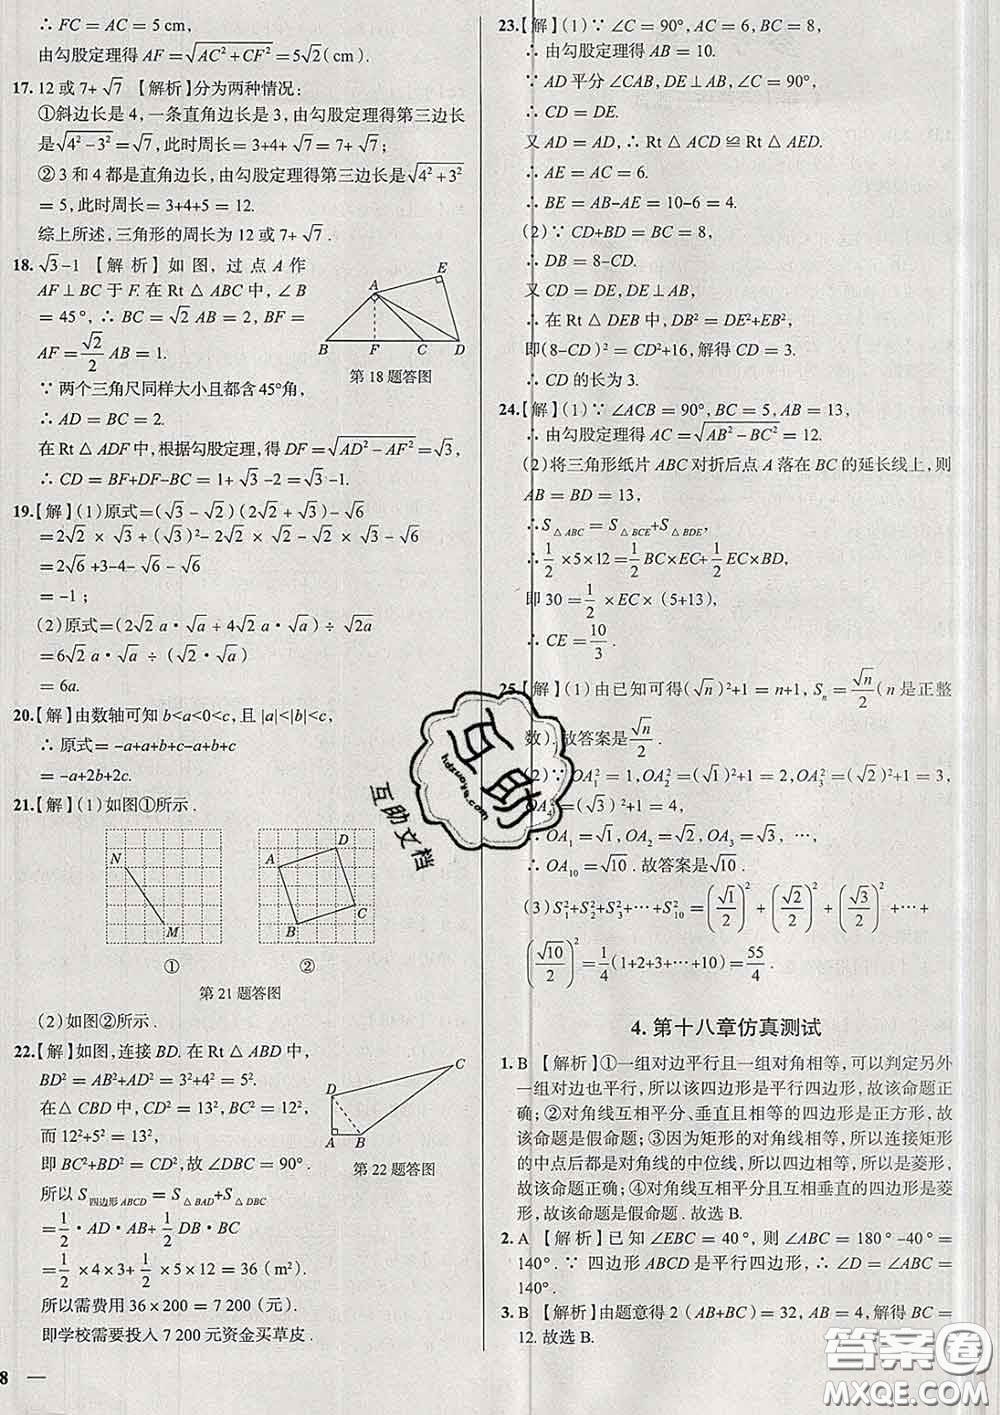 ∴ FC = AC = 5 cm,
由勾股定理得 AF = √(AC²+CF²) = 5√2 (cm).
17. 12 或 7+√7 【解析】分为两种情况：
①斜边长是 4，一条直角边长是 3，由勾股定理得第三边长
是√(4²-3²) = √7，此时周长 = 3+4+√7 = 7+√7；
② 3 和 4 都是直角边长，由勾股定理得第三边长是√(4²+3²)
= 5，此时周长 = 3+4+5 = 12.
综上所述，三角形的周长为 12 或 7+√7.
18. √3-1 【解析】如图，过点 A 作
AF⊥BC 于 F. 在 Rt△ABC 中，∠B
= 45°，∴ BC = √2 AB = 2，BF =
AF = √2/2 AB = 1.
A E B F C D
第 18 题答图
∵ 两个三角尺同样大小且都含45°角，
∴ AD = BC = 2.
在 Rt△ADF 中，根据勾股定理，得 DF = √(AD²-AF²) = √3，
∴ CD = BF+DF-BC = 1+√3-2 = √3-1.
19.【解】(1)原式=(√3-√2)(2√2+√3)-√6
= 2√2 × √3 + (√3)²- 2√2 × √2 - √2 × √3 - √6
= 2√6 +3-4-√6 -√6
= -1；
(2)原式=(2√2 a·√a + 4√2 a·√a) ÷ √2a
= 6√2 a·√a ÷ (√2·√a)
= 6a.
20.【解】由数轴可知 b<a<0<c，且 |a|<|b|<c，
∴ 原式= -a+a+b+c-a+b+c
= -a+2b+2c.
21.【解】(1)如图①所示.
N M A D B C
① ②
第 21 题答图
(2)如图②所示.
22.【解】如图，连接 BD. 在 Rt△ABD 中，
BD² = AB²+AD² = 3²+4² = 5²，
在△CBD 中，CD² = 13²，BC² = 12²，
而 12²+5² = 13²，
即 BC²+BD² = CD²，故∠DBC = 90°.
C D A B
第 22 题答图
所以 S四边形ABCD = S△BAD+S△DBC
= 1/2·AD·AB+ 1/2 DB·BC
= 1/2 ×4×3+ 1/2 ×5×12 = 36 (m²).
所以需费用 36×200 = 7 200 (元).
即学校需要投入 7 200 元资金买草皮.
8
23.【解】(1)∵ ∠C = 90°，AC = 6，BC = 8，
∴ 由勾股定理得 AB = 10.
∵ AD 平分∠CAB，DE⊥AB，∠C = 90°，
∴ CD = DE.
又 AD = AD，∴ Rt△ACD ≌ Rt△AED.
∴ AE = AC = 6.
∴ BE = AB-AE = 10-6 = 4.
(2)∵ CD+BD = BC = 8，
∴ DB = 8-CD.
又 CD = DE，DE⊥AB，
∴ 在 Rt△DEB 中，DB² = DE²+EB²，
即(8-CD)² = CD²+16，解得 CD = 3.
∴ CD 的长为 3.
24.【解】(1)∵ ∠ACB = 90°，BC = 5，AB = 13，
∴ 由勾股定理得 AC = √(AB²-BC²) = 12.
(2)将三角形纸片 ABC 对折后点 A 落在 BC 的延长线上，则
AB = BD = 13，
∴S△ABC = S△BCE+S△BDE，
∴ 1/2 ×5×12 = 1/2 BC×EC+ 1/2 EC×BD，
即 30 = 1/2 ×EC×(5+13)，
∴ CE = 10/3.
25.【解】(1)由已知可得(√n)²+1 = n+1，Sn = √n/2 (n 是正整
数). 故答案是√n/2.
(2)∵ OA₁² = 1，OA₂² = (√1)²+1 = 2，OA₃² = (√2)²+1 = 3，
OA₄² = (√3)²+1 = 4，
∴ OA₁ = √1，OA₂ = √2，OA₃ = √3，…，
∴ OA₁₀ = √10. 故答案是√10.
(3) S₁²+S₂²+S₃²+…+S₁₀² = (√1/2)²+(√2/2)²+(√3/2)²+…+
(√10/2)² = 1/4 (1+2+3+…+10) = 55/4.
4. 第十八章仿真测试
1. B 【解析】①一组对边平行且一组对角相等，可以判定另外
一组对边也平行，所以该四边形是平行四边形，故该命题正
确；②对角线互相平分、垂直且相等的四边形是正方形，故
该命题是假命题；③因为矩形的对角线相等，所以连接矩形
的中点后都是对角线的中位线，所以四边相等，所以是菱形，
故该命题正确；④对角线相互平分且互相垂直的四边形是菱
形，故该命题是假命题. 故选 B.
2. A 【解析】已知∠EBC = 40°，则∠ABC = 180°-40° =
140°. ∵ 四边形 ABCD 是平行四边形，∴ ∠D = ∠ABC =
140°.
3. B 【解析】由题意得 2 (AB+BC) = 32，AB = 4，解得 BC =
12. 故选 B.
互助
hdzuoye.com
互助文档
答案圈
MXQE.COM